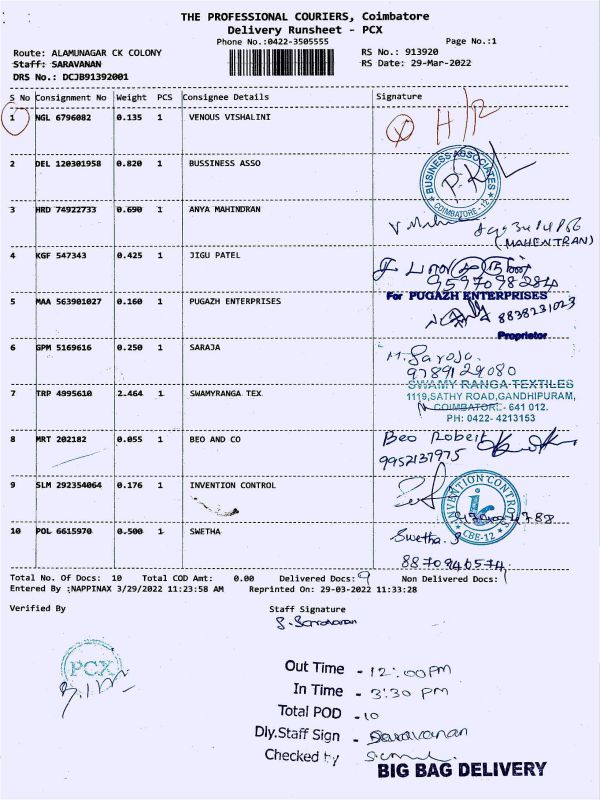 THE PROFESSIONAL COURIERS, Coimbatore
Delivery Runsheet - PCX
Phone No.:0422-3505555
Page No.:1
Route: ALAMUNAGAR CK COLONY
RS No.: 913920
Staff: SARAVANAN
RS Date: 29-Mar-2022
DRS No.: DCJB91392001
S No Consignment No Weight PCS Consignee Details Signature
1 NGL 6796082 0.135 1 VENOUS VISHALINI
H/R
2 DEL 120301958 0.820 1 BUSSINESS ASSO
BUSINESS ASSOCIATES COIMBATORE - 12
3 HRD 74922733 0.690 1 ANYA MAHINDRAN
(MAHENTRAN)
4 KGF 547343 0.425 1 JIGU PATEL
9597098284
5 MAA 563901027 0.160 1 PUGAZH ENTERPRISES
For PUGAZH ENTERPRISES
8838231023
Proprietor
6 GPM 5169616 0.250 1 SARAJA
M. Saroja.
9789129080
7 TRP 4995610 2.464 1 SWAMYRANGA TEX.
SWAMY RANGA TEXTILES
1119,SATHY ROAD,GANDHIPURAM,
COIMBATORE - 641 012.
PH: 0422- 4213153
8 MRT 202182 0.055 1 BEO AND CO
Beo Robert
9952137975
9 SLM 292354064 0.176 1 INVENTION CONTROL
INVENTION CONTROL ic CBE-12
10 POL 6615970 0.500 1 SWETHA
Swetha. S
8870946574
Total No. Of Docs: 10 Total COD Amt: 0.00 Delivered Docs: 9 Non Delivered Docs: 1
Entered By :NAPPINAX 3/29/2022 11:23:58 AM Reprinted On: 29-03-2022 11:33:28
Verified By
Staff Signature
S. Saravanan
PCX
Out Time - 12:00PM
In Time - 3:30 PM
Total POD - 10
Dly.Staff Sign - Saravanan
Checked by
BIG BAG DELIVERY